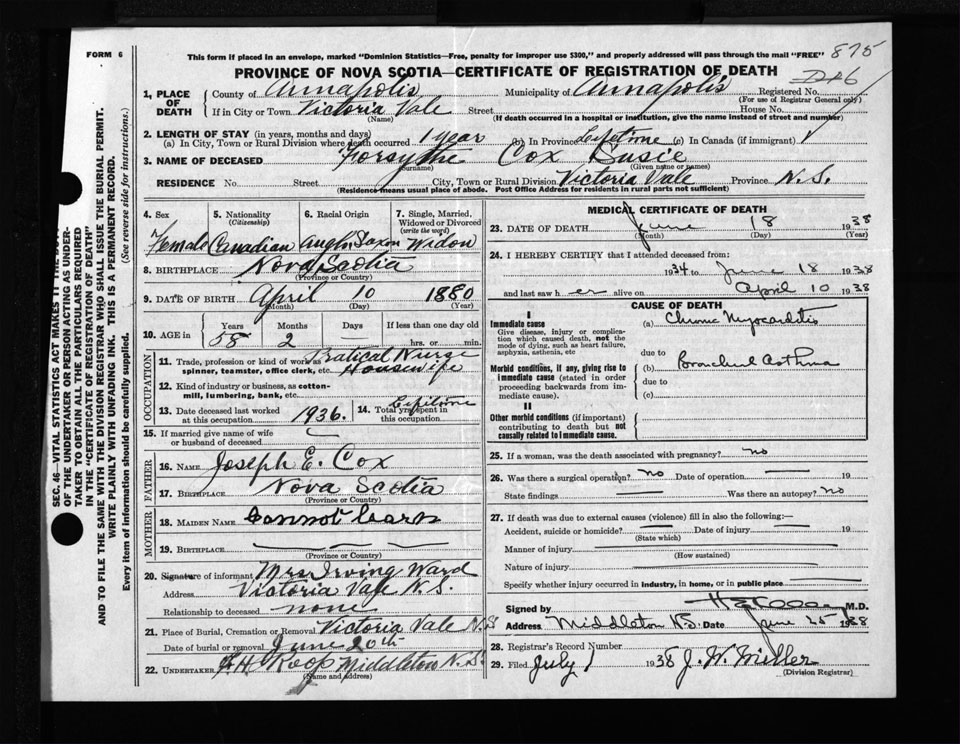 FORM 6
This form if placed in an envelope, marked "Dominion Statistics—Free, penalty for improper use $300," and properly addressed will pass through the mail "FREE"
875
PROVINCE OF NOVA SCOTIA—CERTIFICATE OF REGISTRATION OF DEATH
1. PLACE OF DEATH
County of Annapolis Municipality of Annapolis Registered No.
(For use of Registrar General only)
If in City or Town Victoria Vale Street House No.
(Name) (If death occurred in a hospital or institution, give the name instead of street and number)
2. LENGTH OF STAY (in years, months and days)
(a) In City, Town or Rural Division where death occurred 1 year (b) In Province Lifetime (c) In Canada (if immigrant)
3. NAME OF DECEASED Forsythe Cox Susie
(Surname) (Given name or names)
RESIDENCE No. Street City, Town or Rural Division Victoria Vale Province N.S.
(Residence means usual place of abode. Post Office Address for residents in rural parts not sufficient)
SEC. 46—VITAL STATISTICS ACT MAKES IT THE DUTY
OF THE UNDERTAKER OR PERSON ACTING AS UNDER-
TAKER TO OBTAIN ALL THE PARTICULARS REQUIRED
IN THE "CERTIFICATE OF REGISTRATION OF DEATH"
AND TO FILE THE SAME WITH THE DIVISION REGISTRAR WHO SHALL ISSUE THE BURIAL PERMIT.
WRITE PLAINLY WITH UNFADING INK. THIS IS A PERMANENT RECORD.
Every item of information should be carefully supplied. (See reverse side for instructions.)
4. Sex 5. Nationality 6. Racial Origin 7. Single, Married,
(Citizenship) Widowed or Divorced
(write the word)
Female Canadian Anglo Saxon Widow
8. BIRTHPLACE Nova Scotia
(Province or Country)
9. DATE OF BIRTH April 10 1880
(Month) (Day) (Year)
10. AGE in Years Months Days If less than one day old
58 2 — hrs. or min.
OCCUPATION
11. Trade, profession or kind of work as Pratical Nurse
spinner, teamster, office clerk, etc. Housewife
12. Kind of industry or business, as cotton-
mill, lumbering, bank, etc.
13. Date deceased last worked 14. Total yrs. spent in
at this occupation 1936. this occupation Lifetime
15. If married give name of wife
or husband of deceased
FATHER
16. NAME Joseph E. Cox
17. BIRTHPLACE Nova Scotia
(Province or Country)
MOTHER
18. MAIDEN NAME Cannot learn
19. BIRTHPLACE
(Province or Country)
20. Signature of informant Mrs Irving Ward
Address Victoria Vale N.S.
Relationship to deceased none
21. Place of Burial, Cremation or Removal Victoria Vale N.S
Date of burial or removal June 20th
22. UNDERTAKER Roop Middleton N.S.
(Name and address)
MEDICAL CERTIFICATE OF DEATH
23. DATE OF DEATH June 18 1938
(Month) (Day) (Year)
24. I HEREBY CERTIFY that I attended deceased from:
1934 to June 18 1938
and last saw her alive on April 10 1938
CAUSE OF DEATH
I
Immediate cause (a) Chronic Myocarditis
Give disease, injury or complica-
tion which caused death, not the
mode of dying, such as heart failure,
asphyxia, asthenia, etc due to
Morbid conditions, if any, giving rise to (b) Bronchial Asthma
immediate cause (stated in order due to
proceeding backwards from im-
mediate cause). (c)
II
Other morbid conditions (if important)
contributing to death but not
causally related to immediate cause.
25. If a woman, was the death associated with pregnancy? no
26. Was there a surgical operation? no Date of operation 19
State findings Was there an autopsy? no
27. If death was due to external causes (violence) fill in also the following:—
Accident, suicide or homicide? Date of injury 19
(State which)
Manner of injury
(How sustained)
Nature of injury
Specify whether injury occurred in industry, in home, or in public place
Signed by M.D.
Address Middleton NS. Date June 25 1938
28. Registrar's Record Number
29. Filed July 1 1938 J. W. Miller
(Division Registrar)